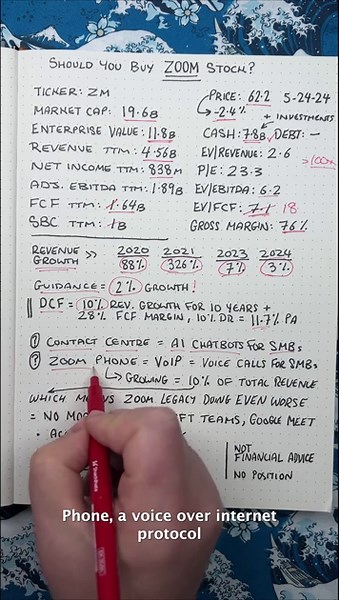 SHOULD YOU BUY ZOOM STOCK?
TICKER: ZM
PRICE: 62.2 5-24-24
-2.4%
MARKET CAP: 19.6B
+ INVESTMENTS
ENTERPRISE VALUE: 11.8B
CASH: 7.8B DEBT: —
REVENUE TTM: 4.56B
EV/REVENUE: 2.6
>100%
NET INCOME TTM: 838M
P/E: 23.3
ADJ. EBITDA TTM: 1.89B
EV/EBITDA: 6.2
FCF TTM: 1.64B
EV/FCF: 7.1 18
SBC TTM: 1B
GROSS MARGIN: 76%
REVENUE GROWTH >>
2020 2021 2023 2024
88% 326% 7% 3%
GUIDANCE: 2% GROWTH!
DCF = 10% REV. GROWTH FOR 10 YEARS +
28% FCF MARGIN, 10% DR = 11.7% PA
① CONTACT CENTRE = AI CHATBOTS FOR SMBs
② ZOOM PHONE = VOIP = VOICE CALLS FOR SMBs
GROWING = 10% OF TOTAL REVENUE
WHICH MEANS ZOOM LEGACY DOING EVEN WORSE
= NO FT TEAMS, GOOGLE MEET
NOT
FINANCIAL ADVICE
NO POSITION
Phone, a voice over internet
protocol